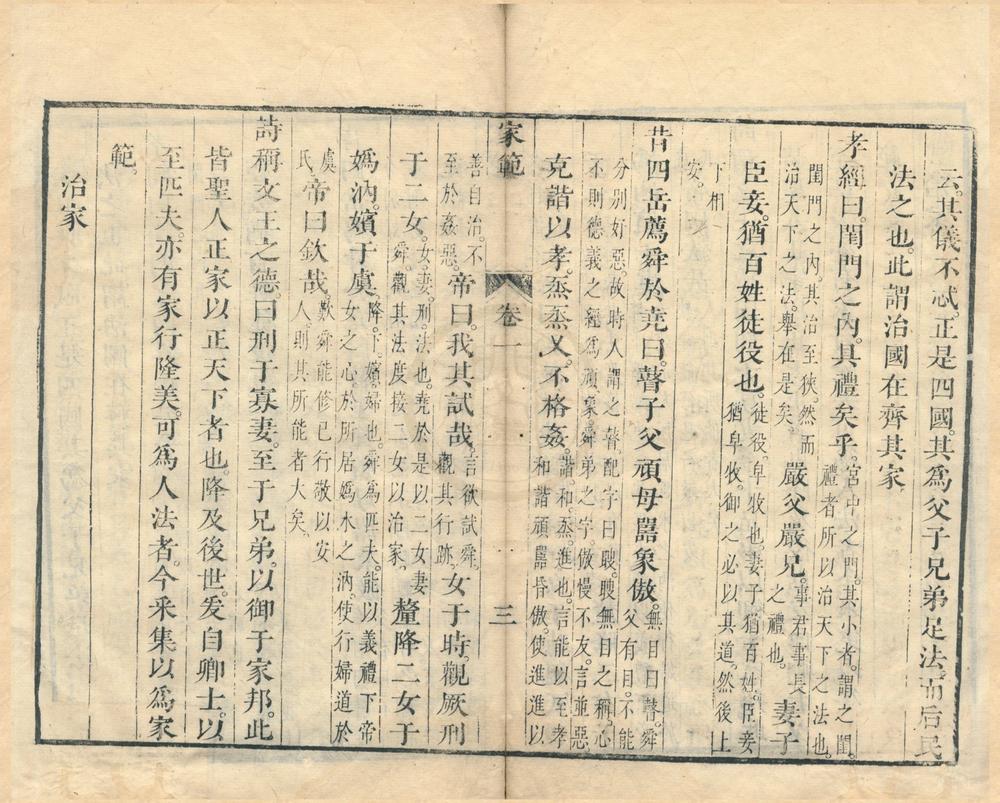 云。其儀不忒。正是四國。其爲父子兄弟足法。而后民
法之也。此謂治國在齊其家
孝經曰。閨門之内。具禮矣乎。宮中之門。其小者。謂之閨。禮者所以治天下之法也。
閨門之内。其治至狹。然而治天下之法。舉在是矣。嚴父嚴兄。事君事長之禮也。妻子
臣妾。猶百姓徒役也。徒役。皁牧也。妻子猶百姓。臣妾猶皁牧。御之必以其道。然後上
下相安。
昔四岳薦舜於堯曰。瞽子父頑母嚚象傲。無目曰瞽。舜父有目。不能
分別好惡。故時人謂之瞽。配字曰瞍。瞍無目之稱。心不則德義之經爲頑。象。舜弟之字。傲慢不友。言並惡
克諧以孝。烝烝乂。不格姦。諧。和。烝。進也。言能以至孝和諧頑嚚昏傲。使進進以
家範 卷一 三
善自治。不至於姦惡。帝曰。我其試哉。言欲試舜。觀其行跡。女于時。觀厥刑
于二女。女。妻。刑。法也。堯於是以二女妻舜。觀其法度接二女以治家。釐降二女于
嬀汭。嬪于虞。降。下。嬪。婦也。舜爲匹夫。能以義禮下帝女之心。於所居嬀水之汭。使行婦道於
虞氏。帝曰。欽哉。歎舜能修已行敬以安人。則其所能者大矣。
詩稱文王之德。曰刑于寡妻。至于兄弟。以御于家邦。此
皆聖人正家以正天下者也。降及後世。爰自卿士。以
至匹夫。亦有家行隆美。可爲人法者。今采集以爲家
範。
治家